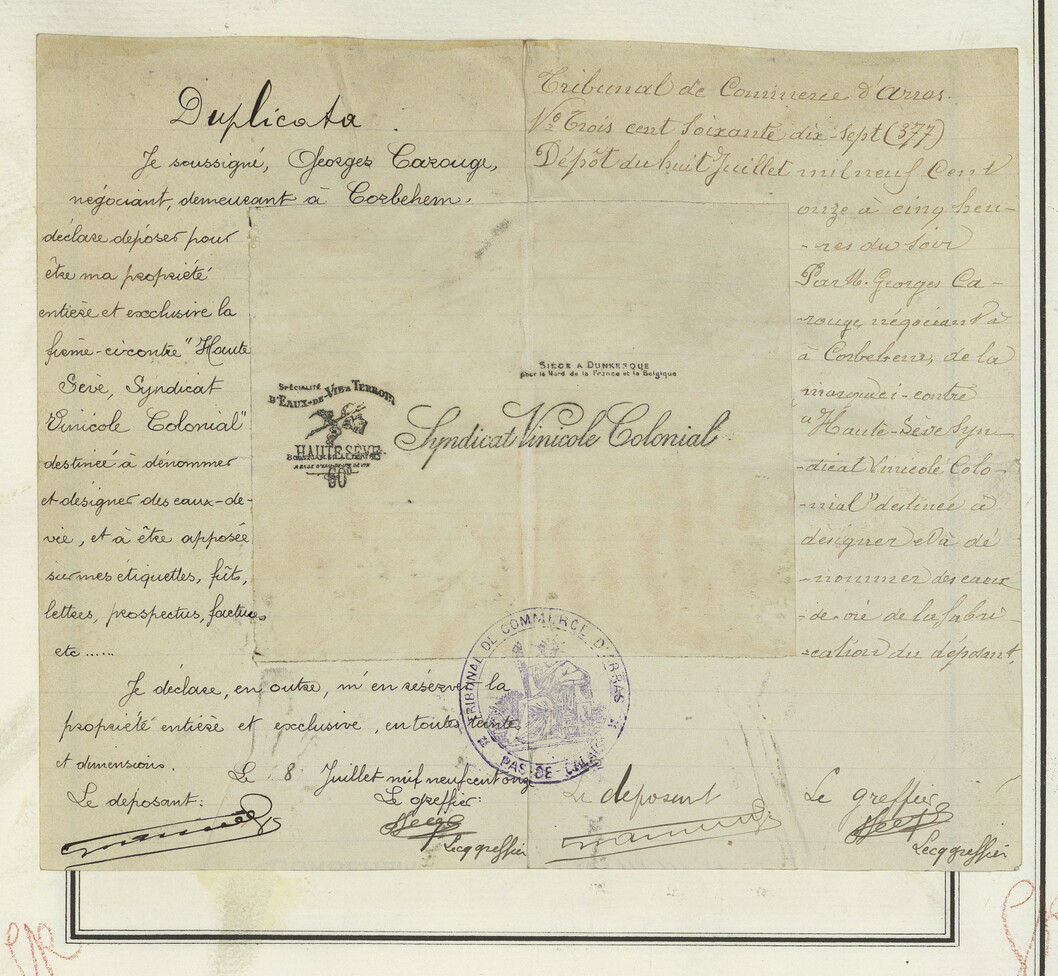 Duplicata.
Je soussigné, Georges Carouge,
négociant, demeurant à Corbehem,
déclare déposer pour
être ma propriété
entière et exclusive la
ci-contre "Haute
Sève, Syndicat
Vinicole Colonial"
destinée à dénommer
et désigner des eaux-de-
vie, et à être apposée
sur mes étiquettes, fûts,
lettres, prospectus, factures
etc......
Je déclare, en outre, m'en réserver la
propriété entière et exclusive, en toutes teintes
et dimensions.
Le 8 Juillet mil neuf cent onze
Le déposant:
Le greffier:
Lecq greffier
Tribunal de Commerce d'Arras.
No Trois cent soixante dix-sept (377)
Dépôt du huit Juillet mil neuf Cent
onze à cinq heu-
-res du soir
Par M. Georges Ca-
-rouge, négociant à
à Corbehem, de la
marque ci-contre
"Haute-Sève Syn
-dicat Vinicole Colo-
-nial" destinée à
désigner et à dé
-nommer des eaux
-de-vie de la fabri-
-cation du déposant,
Le deposant
Le greffier
Lecq greffier
SIÈGE A DUNKERQUE
pour le Nord de la France et la Belgique
SPÉCIALITÉ
D'EAUX-DE-VIE & TERROIR
HAUTE SÈVE
60°
Syndicat Vinicole Colonial
TRIBUNAL DE COMMERCE D'ARRAS
PAS-DE-CALAIS